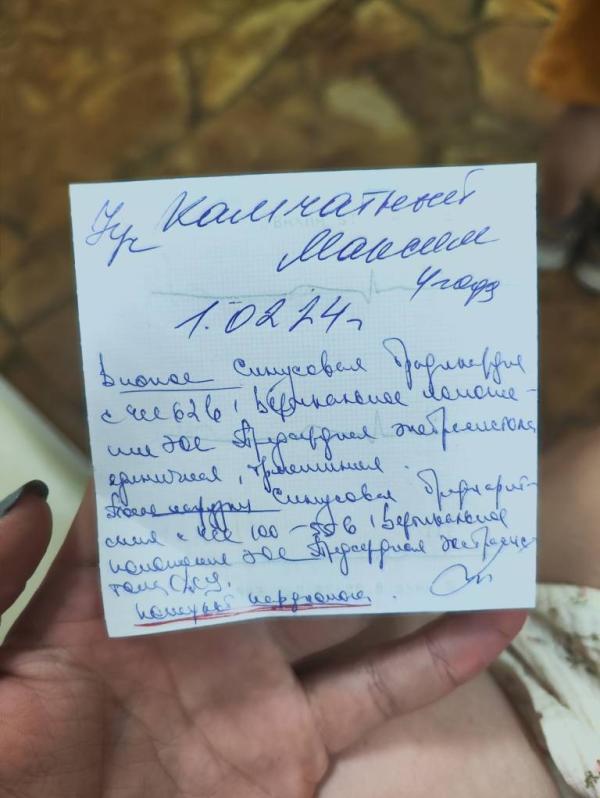 Камчатный
Максим
4 года
1.02 24г
В покое синусовая брадикардия
с чсс 62 в', Вертикальное положе-
ние ЭОС Предсердная экстрасистола
единичная,
После нагрузки Синусовая
с чсс 100 - в', Вертикальное
положение ЭОС Предсердная экстрасис-
тола
консульт кардиолога.